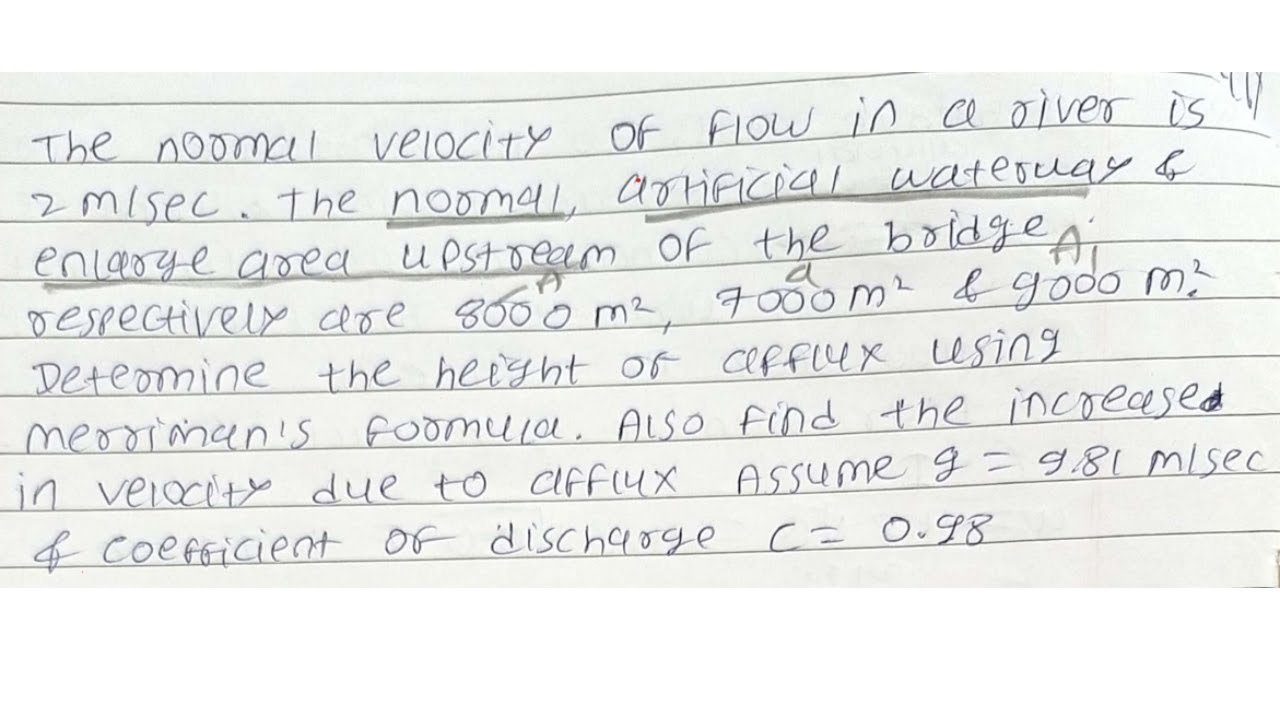 The normal velocity of flow in a river is
2 m/sec. The normal, artificial waterway &
enlarge area upstream of the bridge A1
respectively are 8000 m², 7000 m² & 9000 m².
Determine the height of afflux using
merriman's formula. Also find the increased
in velocity due to afflux Assume g = 9.81 m/sec
& coefficient of discharge c = 0.98